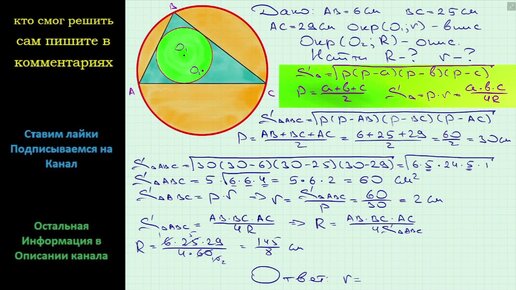 кто смог решить
сам пишите в
комментариях
Ставим лайки
Подписываемся на
Канал
Остальная
Информация в
Описании канала
B
O₁
O₂
A
C
Дано: AB=6см BC=25см
AC=29см Окр(O₁,r)-впис
Окр(O₂,R)-опис.
Найти R-? r-?
S△=√p(p-a)(p-b)(p-c)
p=a+b+c/2 S△=p·r=a·b·c/4R
S△ABC=√p(p-AB)(p-BC)(p-AC)
P=AB+BC+AC/2=6+25+29/2=60/2=30см
S△ABC=√30(30-6)(30-25)(30-29)=√6·5·24·5·1
S△ABC=5·√6·6·4=5·6·2=60 см²
S△ABC=p·r → r=S△ABC/p=60/30=2см
S△ABC=AB·BC·AC/4R ⇒ R=AB·BC·AC/4S△ABC
R=6·25·29/4·60=145/8 см
Ответ: r=